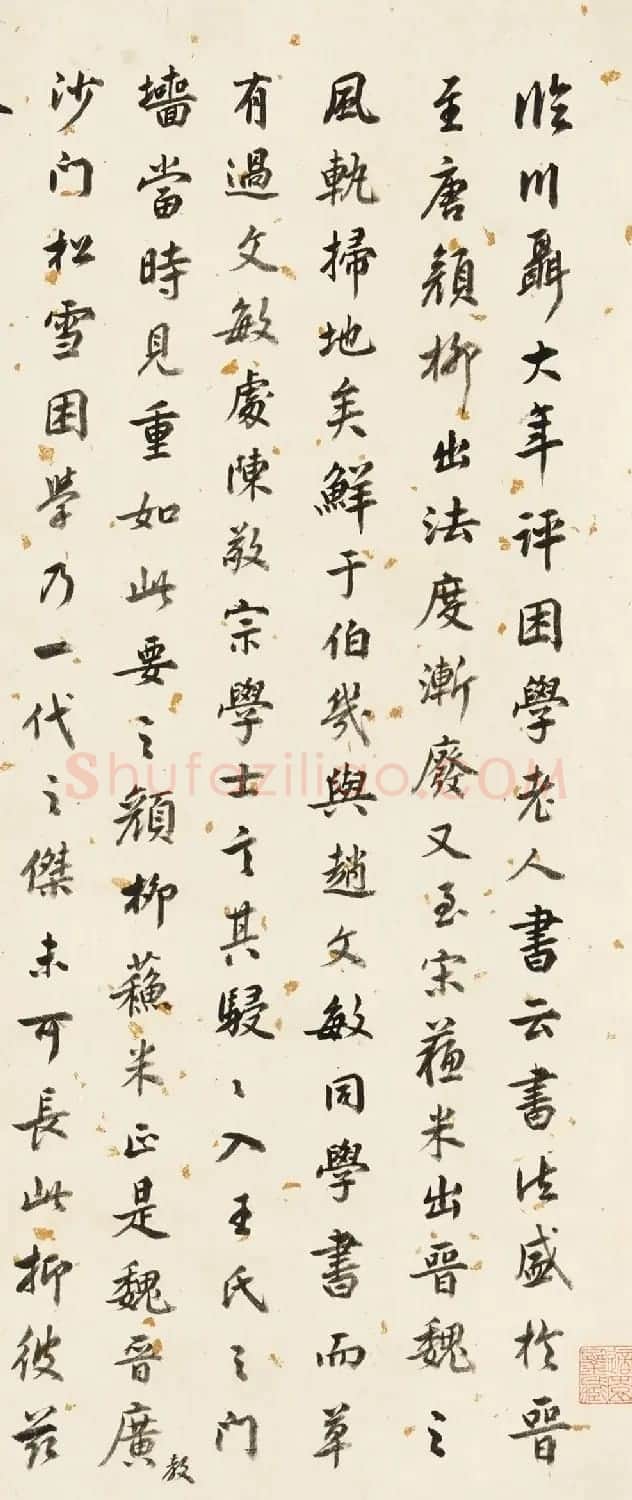 临川聶大年评困學老人書云書法盛於晉
至唐顔柳出法度漸廢又至宋蘓米出晉魏之
風軌掃地矣鮮于伯幾與趙文敏同學書而草
有過文敏處陳敬宗學士言其駸〻入王氏之门
墻當時見重如此要之顔柳蘓米正是魏晉廣教
沙门松雪困學乃一代之傑未可長此抑彼兹
Shufaziliao.COM